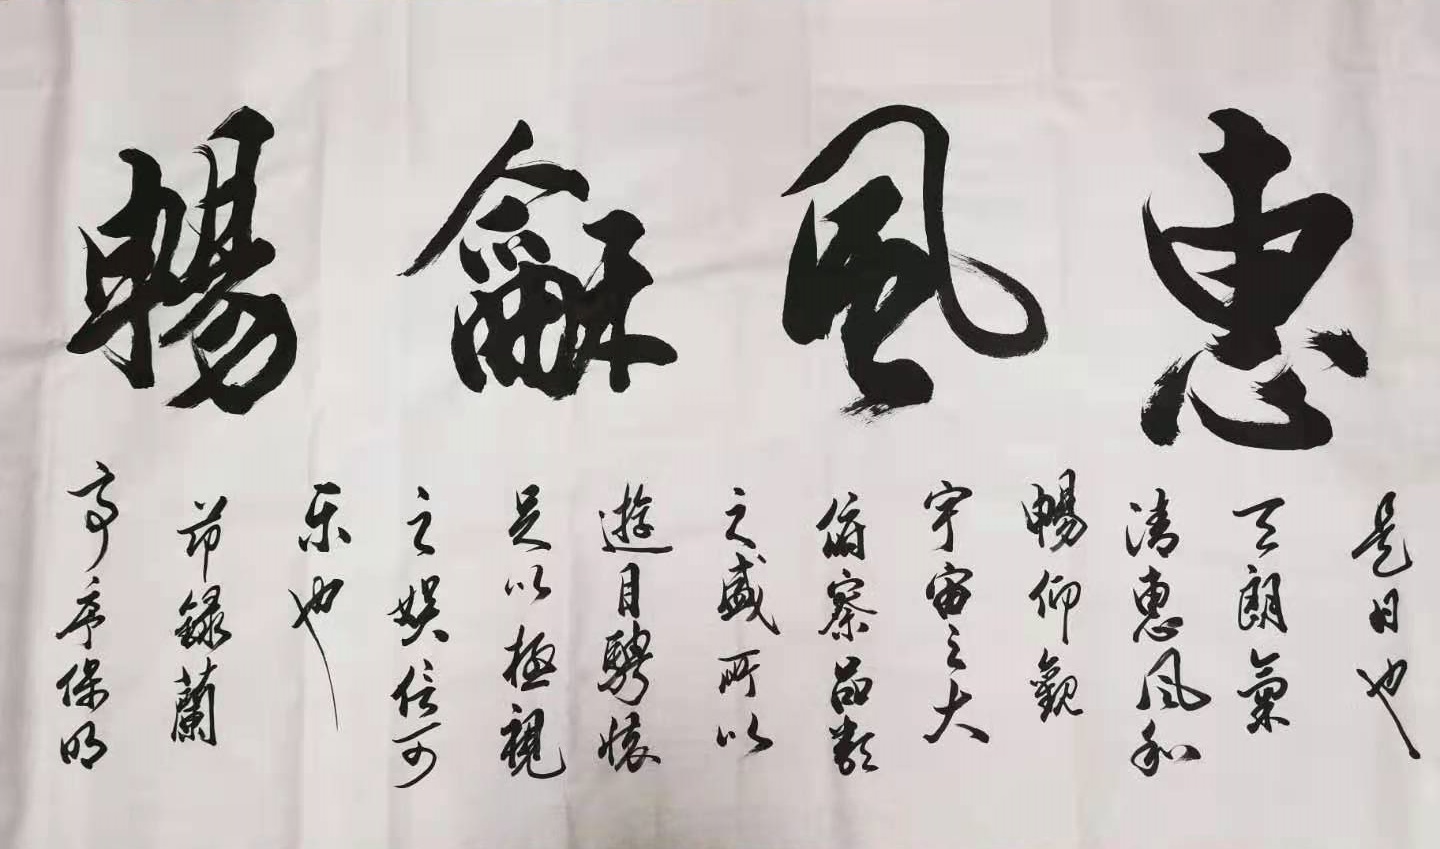 惠風龢暢
是日也
天朗氣
清惠風和
暢仰觀
宇宙之大
俯察品類
之盛所以
遊目騁懷
足以極視
之娛信可
乐也
节録蘭
亭序保明